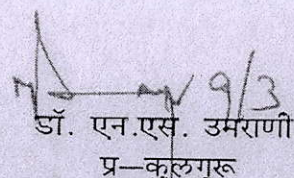 9/3
डॉ. एन.एस. उमराणी
प्र–कुलगुरू